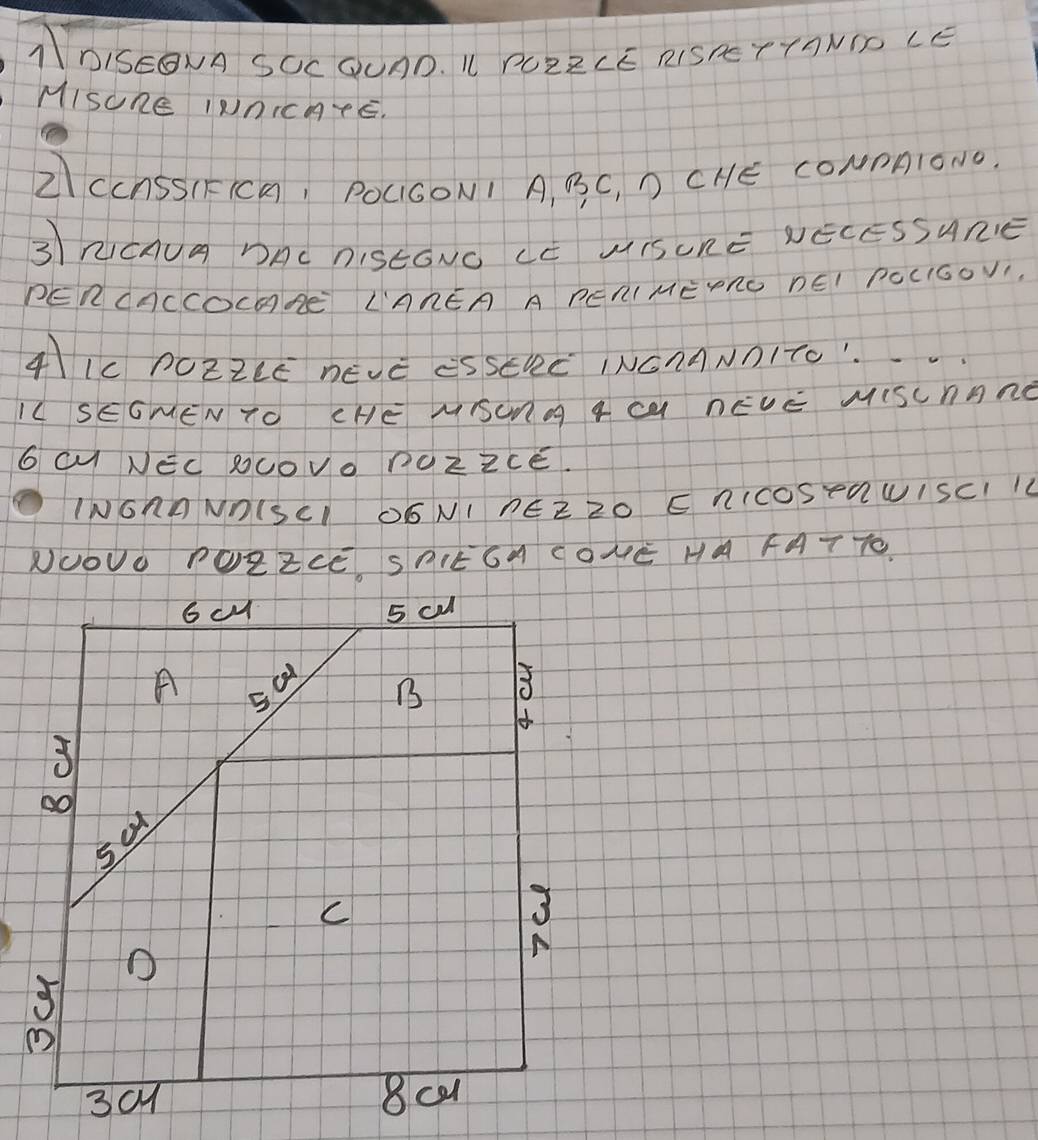 1) DISEGNA SUL QUAD. IL PUZZLE RISPETTANDO LE
MISURE INDICATE.
2) CLASSIFICA I POLIGONI A, B, C, D CHE COMPAIONO.
3) RICAVA DAL DISEGNO LE MISURE NECESSARIE
PER CALCOLARE L'AREA A PERIMETRO DEI POLIGONI.
4) IL PUZZLE DEVE ESSERE INGRANDITO: . . .
IL SEGMENTO CHE MISURA 4 CM DEVE MISURARE
6 CM NEL NUOVO PUZZLE.
INGRANDISCI OGNI PEZZO E RICOSTRUISCI IL
NUOVO PUZZLE. SPIEGA COME HA FATTO.
6 CM 5 CM
A 5 CM B 4 CM
8 CM
5 CM
C 7 CM
D
3 CM
3 CM 8 CM